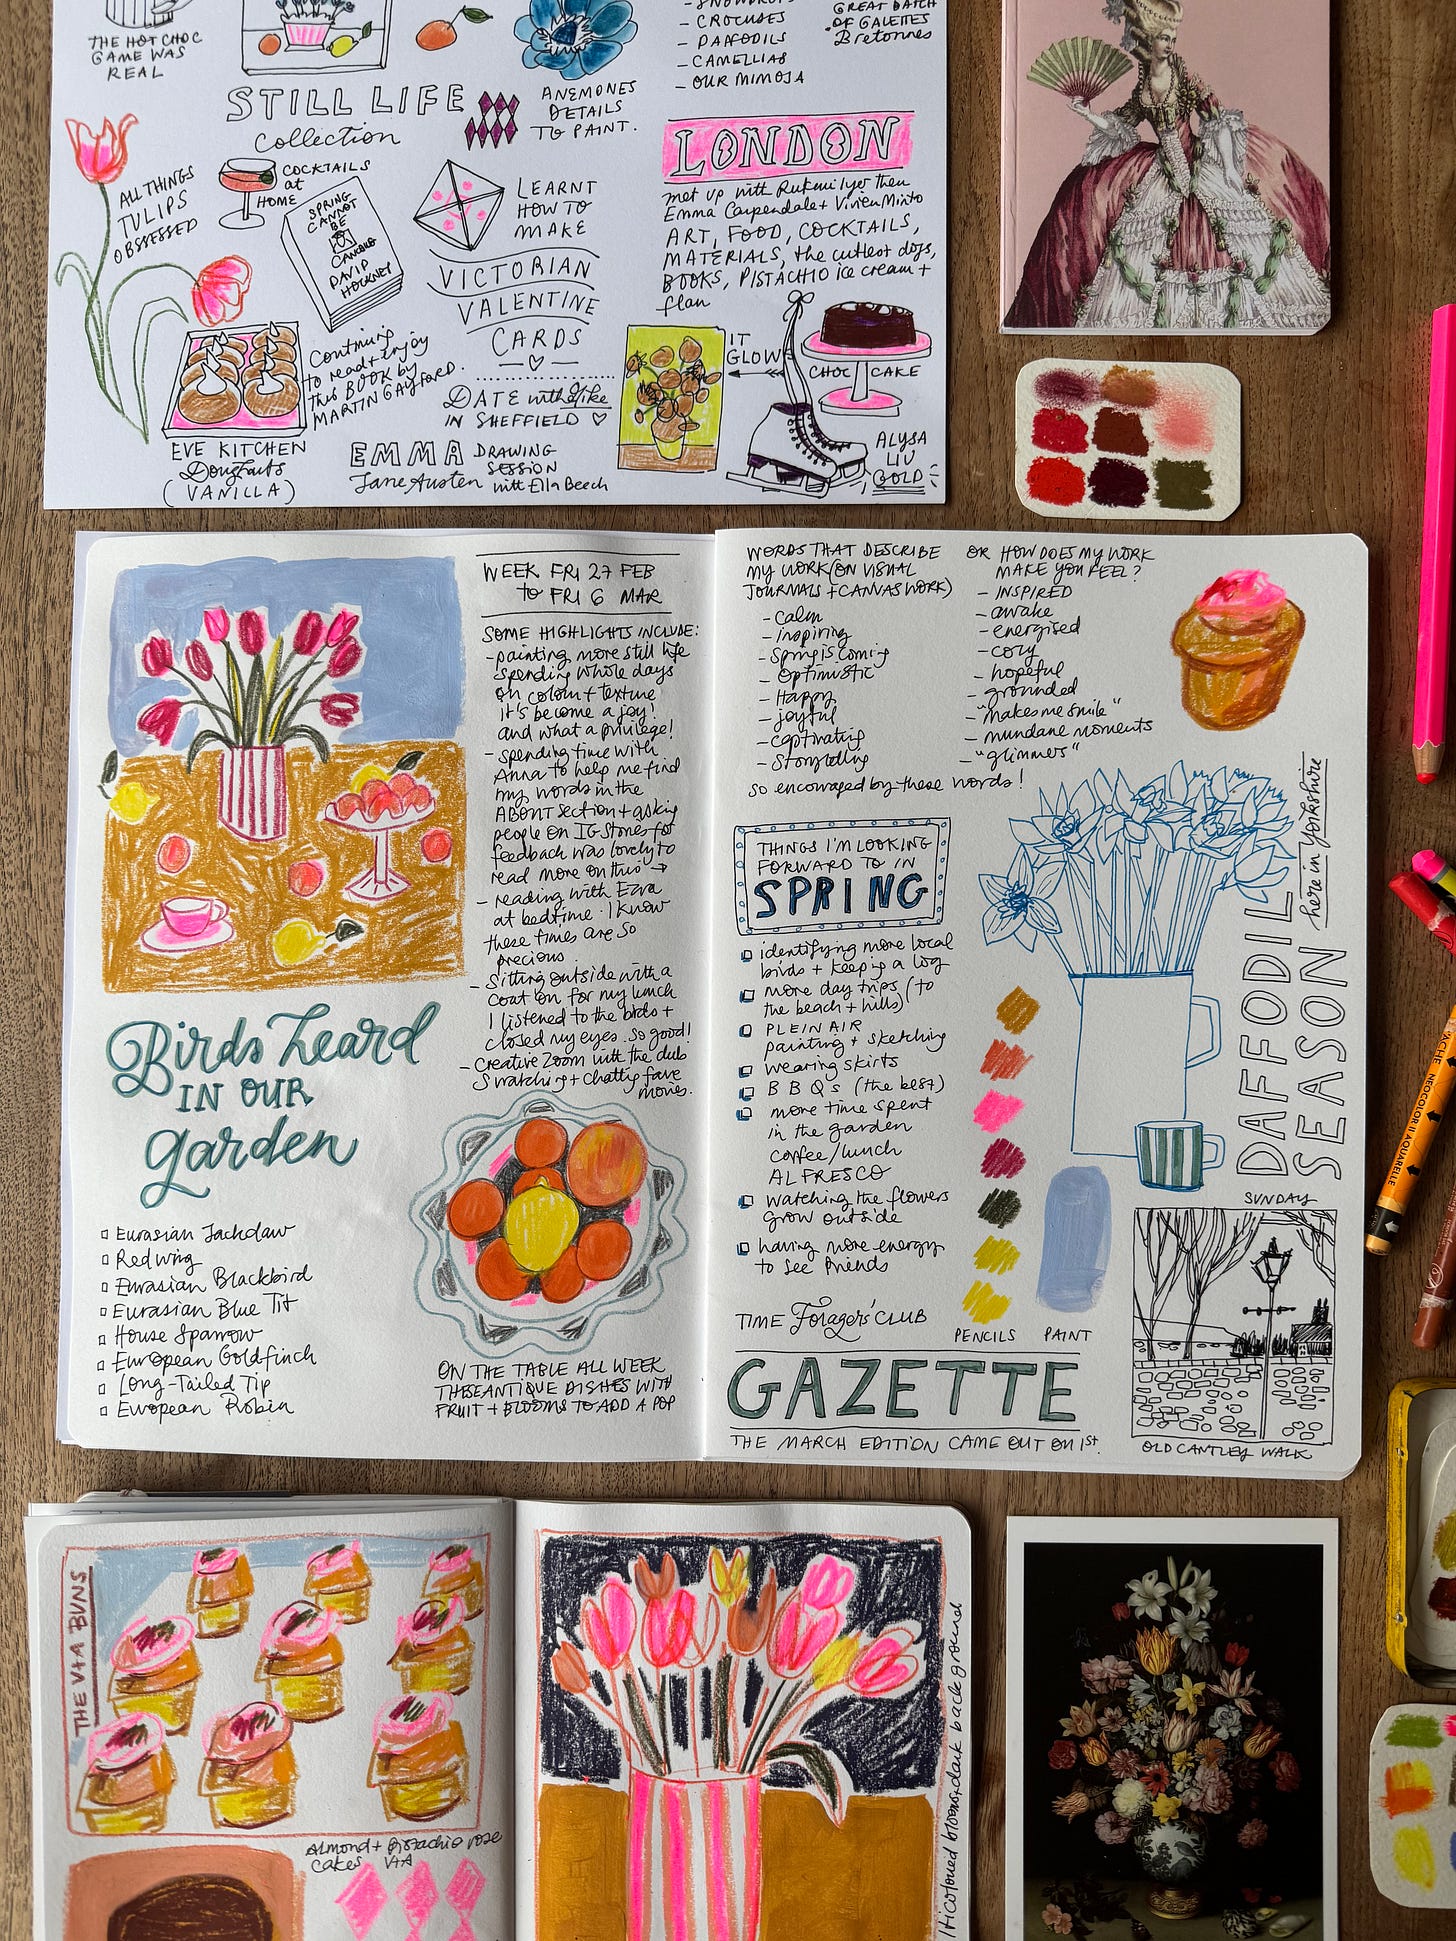 THE HOT CHOC
GAME WAS
REAL
STILL LIFE
Collection
ANEMONES
DETAILS
TO PAINT.
- SNOWDROPS
- CROCUSES
- DAFFODILS
- CAMELLIAS
- OUR MIMOSA
GREAT BATCH
OF GALETTES
Bretonnes
ALL THINGS
TULIPS
OBSESSED
COCKTAILS
at
HOME
SPRING
CANNOT
BE
CANCELLED
DAVID
HOCKNEY
Continuing
to read + enjoy
this BOOK by
MARTIN GAYFORD.
LEARNT
HOW TO
MAKE
VICTORIAN
VALENTINE
CARDS
DATE with Mike
IN SHEFFIELD
EVE KITCHEN
Doughnuts
(VANILLA)
EMMA DRAWING
SESSION
Jane Austen with Ella Beech
LONDON
met up with Rukmilyer then
Emma Carpendale + Vivien Minto
ART, FOOD, COCKTAILS,
MATERIALS, the cutest dogs,
BOOKS, PISTACHIO ice cream +
flan
IT
GLOWS
CHOC CAKE
ALYSA
LIU
GOLD
WEEK FRI 27 FEB
to FRI 6 MAR
SOME HIGHLIGHTS INCLUDE:
- painting more still life
spending whole days
on colour + texture
it's become a joy!
and what a privilege!
- spending time with
Anna to help me find
my words in the
ABOUT section + asking
people on IG Stories for
feedback was lovely to
read more on this →
- reading with Ezra
at bedtime. I know
these times are so
precious
- Sitting outside with a
coat on for my lunch
I listened to the birds +
closed my eyes. so good!
- Creative Zoom with the club
Swatching + chatting fave
movies.
Birds heard
IN OUR
garden
Eurasian Jackdaw
Redwing
Eurasian Blackbird
Eurasian Blue Tit
House Sparrow
European Goldfinch
Long-Tailed Tip
European Robin
ON THE TABLE ALL WEEK
THESE ANTIQUE DISHES WITH
FRUIT + BLOOMS TO ADD A POP
WORDS THAT DESCRIBE
MY WORK (ON VISUAL
JOURNALS + CANVAS WORK)
- Calm
- inspiring
- Spring is coming
- Optimistic
- Happy
- joyful
- captivating
- Storytelling
OR HOW DOES MY WORK
MAKE YOU FEEL?
- INSPIRED
- awake
- energised
- cozy
- hopeful
- grounded
- "makes me smile"
- mundane moments
- "glimmers"
so encouraged by these words!
THINGS I'M LOOKING
FORWARD TO IN
SPRING
identifying more local
birds + keeping a log
more day trips (to
the beach + hills)
PLEIN AIR
painting + sketching
wearing skirts
BBQ's (the best)
more time spent
in the garden
coffee/lunch
AL FRESCO
watching the flowers
grow outside
having more energy
to see friends
DAFFODIL
SEASON
here in Yorkshire
PENCILS PAINT
TIME Foragers' CLUB
GAZETTE
THE MARCH EDITION CAME OUT ON 1st.
SUNDAY
OLD CANTLEY WALK
NEOCOLOR II AQUARELLE
THE V+A BUNS
Almond + Pistachio rose
cakes V+A
blooms + dark background